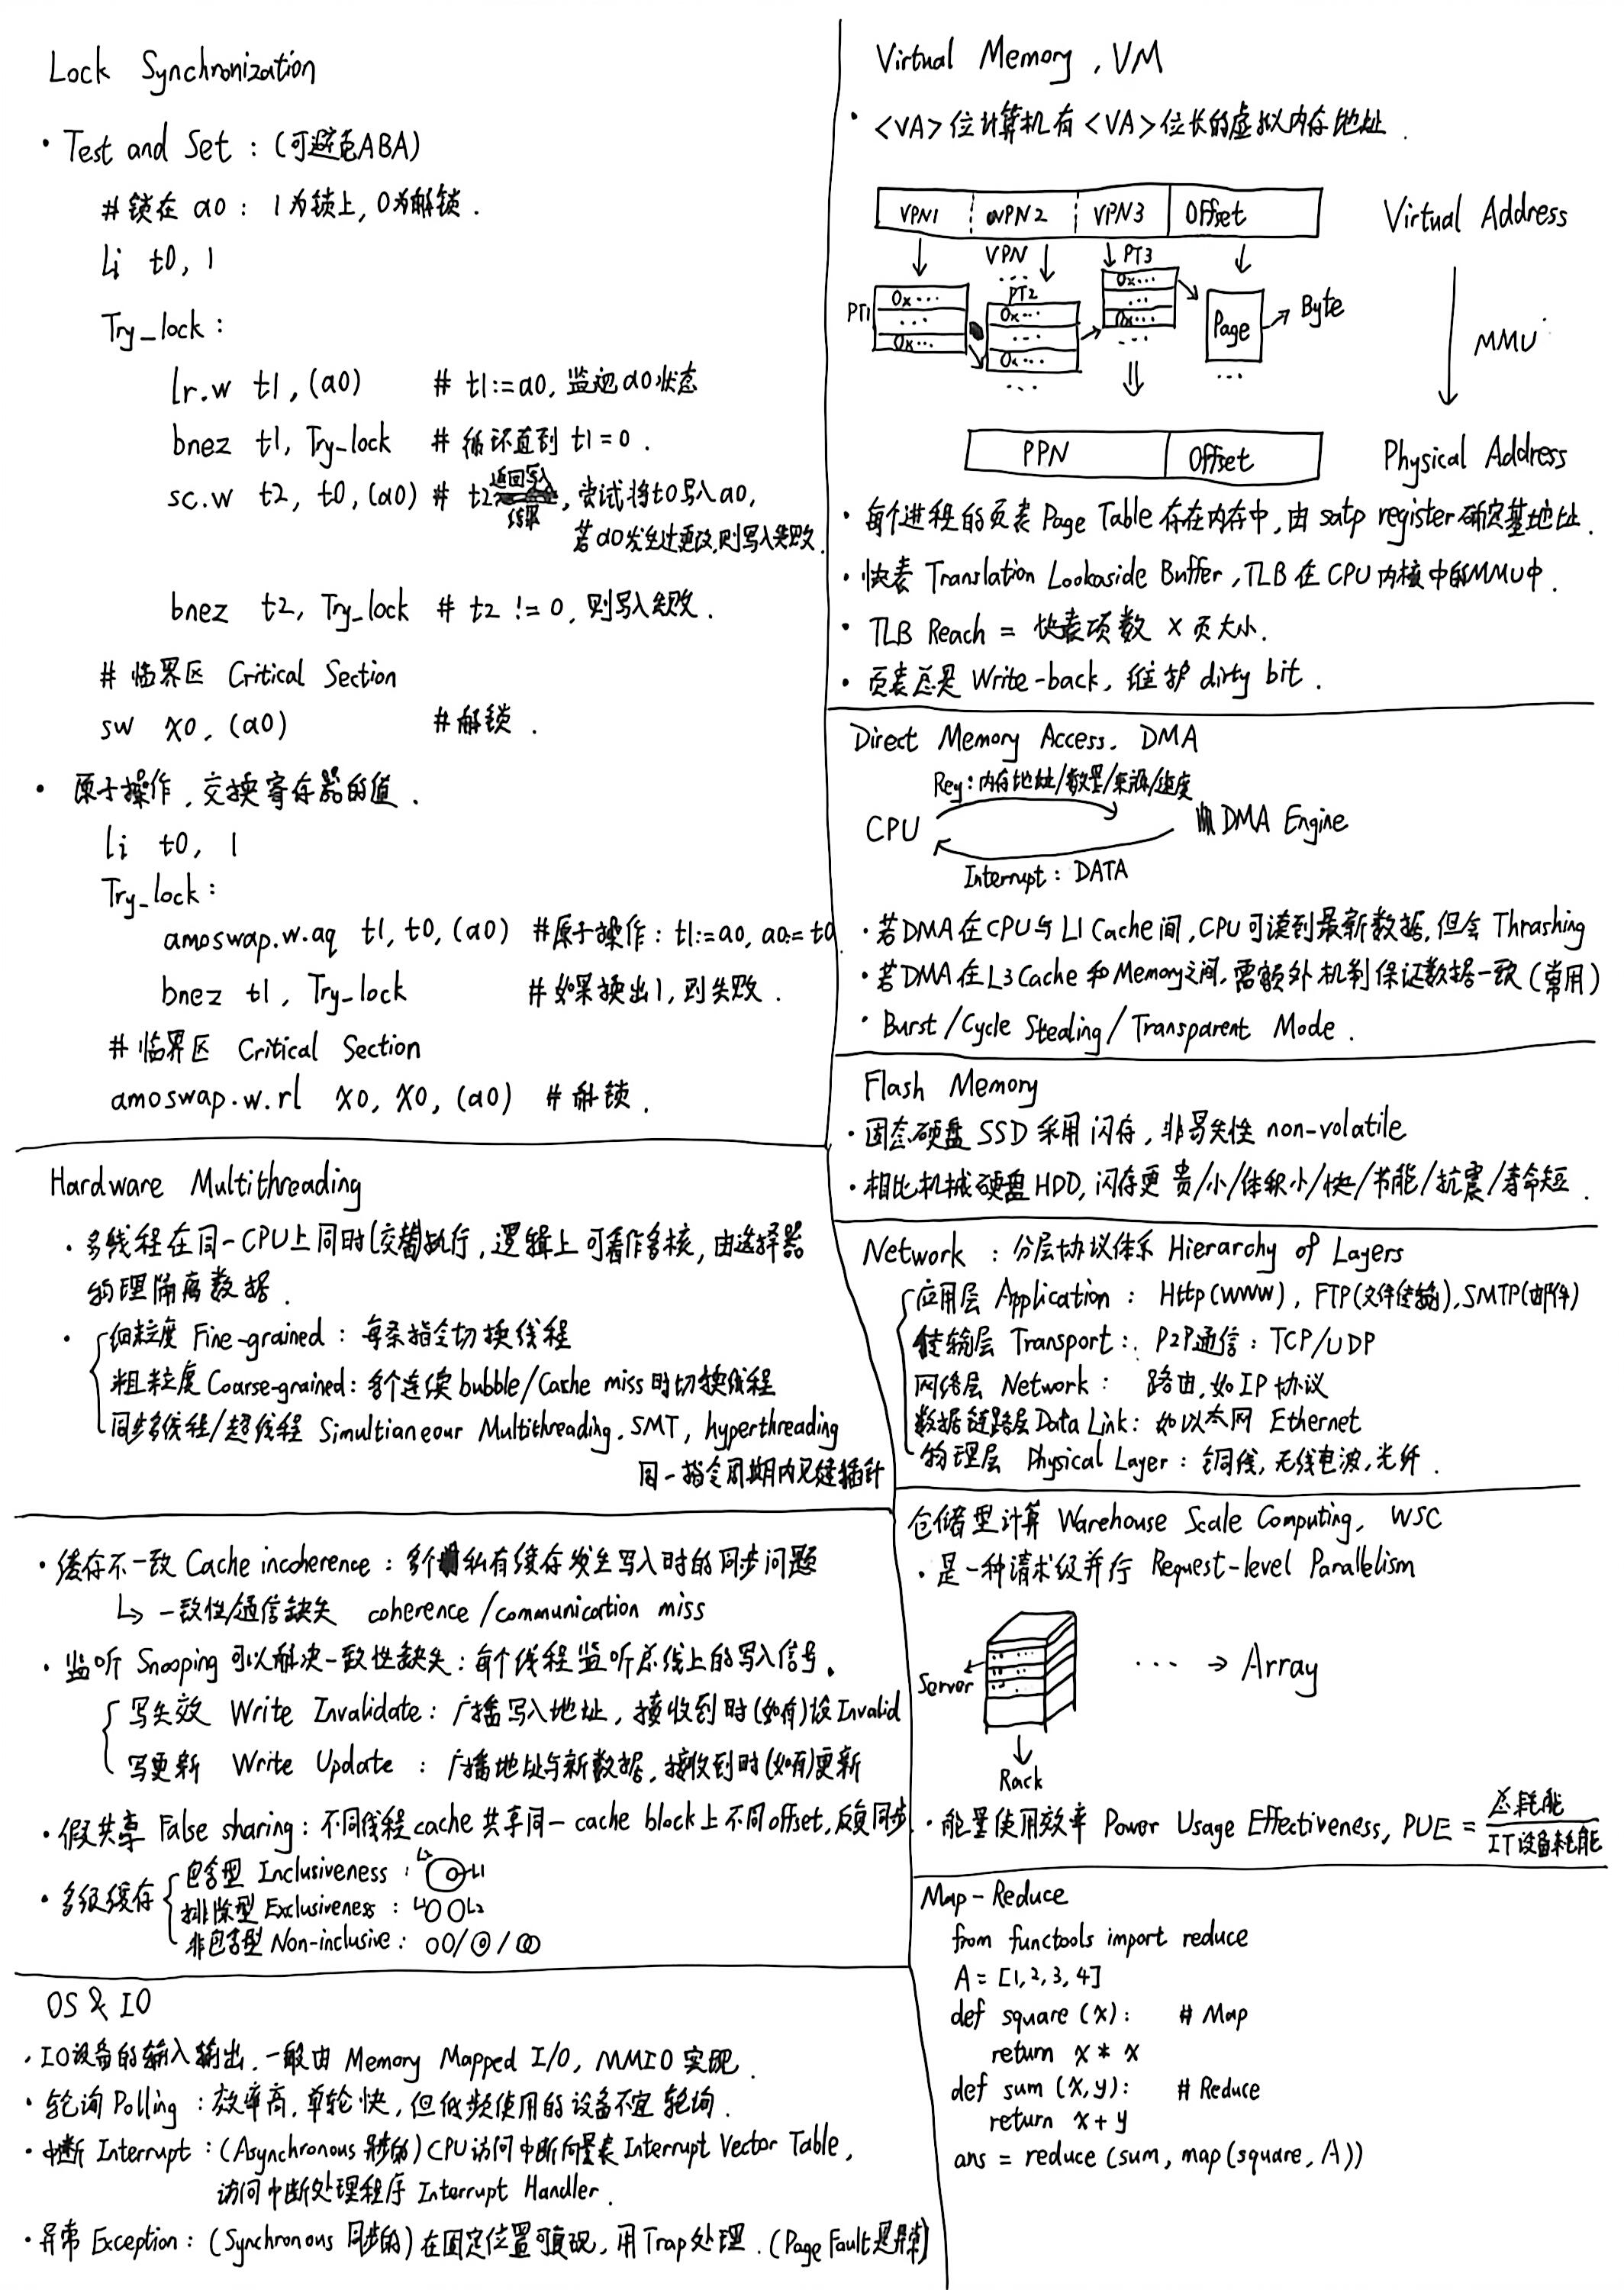 Lock Synchronization
· Test and Set : (可避免ABA)
# 锁在 a0 : 1为锁上, 0为解锁 .
li t0, 1
Try_lock :
lr.w t1, (a0) # t1:=a0, 监视a0状态
bnez t1, Try_lock # 循环直到 t1=0 .
sc.w t2, t0, (a0) # t2返回写入结果, 尝试将t0写入a0,
若a0发生过更改,则写入失败.
bnez t2, Try_lock # t2 != 0, 则写入失败 .
# 临界区 Critical Section
sw x0, (a0) # 解锁 .
· 原子操作, 交换寄存器的值 .
li t0, 1
Try_lock :
amoswap.w.aq t1, t0, (a0) #原子操作: t1:=a0, a0:=t0
bnez t1, Try_lock #如果换出1, 则失败 .
# 临界区 Critical Section
amoswap.w.rl x0, x0, (a0) # 解锁 .
Hardware Multithreading
· 多线程在同一CPU上同时(交替)执行, 逻辑上可看作多核, 由选择器
物理隔离数据 .
· 细粒度 Fine-grained : 每条指令切换线程
粗粒度 Coarse-grained: 多个连续bubble/Cache miss时切换线程
同步多线程/超线程 Simultianeour Multithreading. SMT, hyperthreading
同一指令周期内见缝插针
· 缓存不一致 Cache incoherence : 多个私有缓存发生写入时的同步问题
↳ 一致性/通信缺失 coherence /communication miss
· 监听 Snooping 可以解决一致性缺失: 每个线程监听总线上的写入信号。
写失效 Write Invalidate : 广播写入地址, 接收到时(如有)设Invalid
写更新 Write Update : 广播地址与新数据, 接收到时(如有)更新
· 假共享 False sharing : 不同线程cache共享同一 cache block上不同offset,反复同步.
· 多级缓存 包含型 Inclusiveness : L2 L1
排除型 Exclusiveness : L1 L2
非包含型 Non-inclusive : / /
OS & IO
· IO设备的输入输出, 一般由 Memory Mapped I/O, MMIO 实现.
· 轮询 Polling : 效率高, 单轮快, 但低频使用的设备不宜轮询 .
· 中断 Interrupt : (Asynchronous 异步的) CPU访问中断向量表 Interrupt Vector Table,
访问中断处理程序 Interrupt Handler.
· 异常 Exception : (Synchronous 同步的) 在固定位置可复现, 用Trap处理 . (Page Fault是异常)
Virtual Memory , VM
· <VA>位计算机有<VA>位长的虚拟内存地址 .
VPN1 VPN2 VPN3 Offset Virtual Address
VPN PT3
PT1 0x··· ··· 0x···
PT2 0x··· ··· 0x··· ···
0x··· ··· 0x··· ···
Page ··· → Byte
MMU
PPN Offset Physical Address
· 每个进程的页表 Page Table 存在内存中, 由 satp register确定基地址.
· 快表 Translation Lookaside Buffer, TLB 在 CPU 内核中的MMU中.
· TLB Reach = 快表项数 × 页大小.
· 页表总是 Write-back, 维护 dirty bit .
Direct Memory Access. DMA
Req: 内存地址/数量/来源/速度
CPU DMA Engine
Interrupt : DATA
· 若DMA在CPU与L1 Cache间, CPU可读到最新数据, 但会 Thrashing
· 若DMA在L3 Cache 和Memory之间, 需额外机制保证数据一致 (常用)
· Burst /Cycle Stealing / Transparent Mode .
Flash Memory
· 固态硬盘 SSD 采用闪存, 非易失性 non-volatile
· 相比机械硬盘 HDD, 闪存更 贵/小/体积小/快/节能/抗震/寿命短 .
Network : 分层协议体系 Hierarchy of Layers
应用层 Application : Http(www), FTP(文件传输), SMTP(邮件)
传输层 Transport : P2P通信 : TCP/UDP
网络层 Network : 路由, 如IP协议
数据链路层 Data Link : 如以太网 Ethernet
物理层 Physical Layer : 铜线, 无线电波, 光纤 .
仓储型计算 Warehouse Scale Computing, WSC
· 是一种请求级并行 Request-level Parallelism
Server ··· → Array
Rack
· 能量使用效率 Power Usage Effectiveness, PUE = 总耗能 / IT设备耗能
Map-Reduce
from functools import reduce
A = [1, 2, 3, 4]
def square (x) : # Map
return x * x
def sum (x, y) : # Reduce
return x + y
ans = reduce (sum, map (square, A))